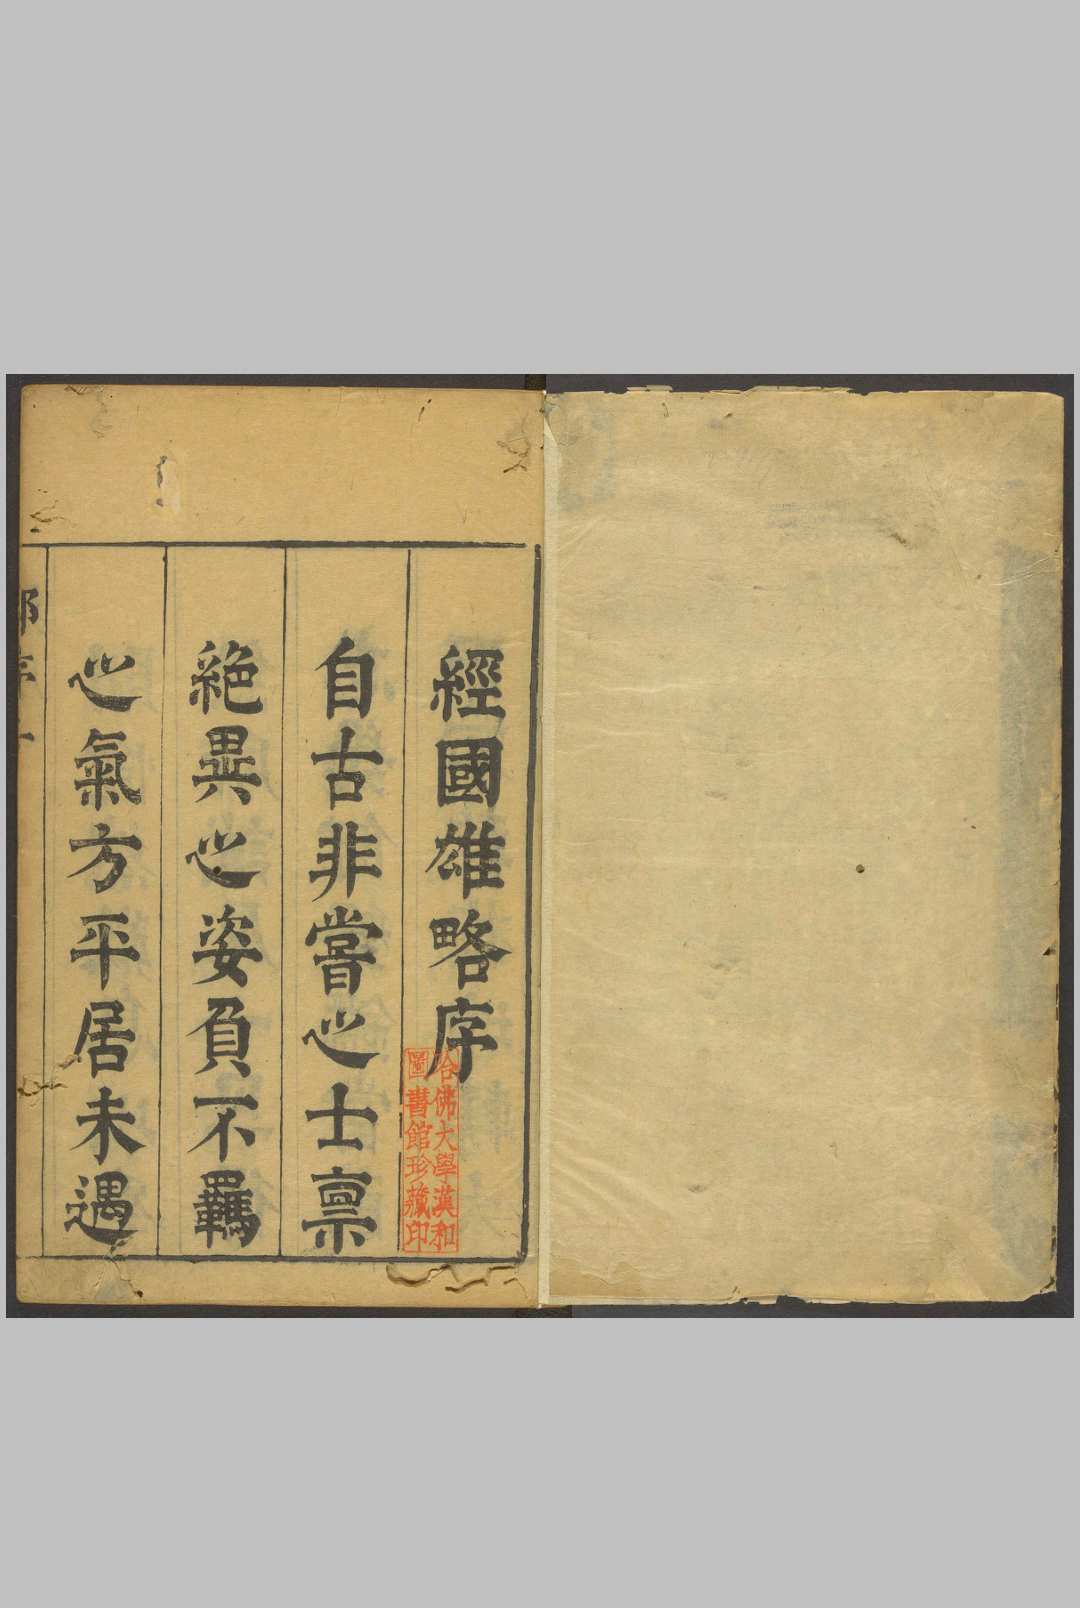 經國雄略序
自古非嘗之士禀
絶異之姿負不羈
之氣方平居未遇
哈佛大學漢和
圖書館珍藏印